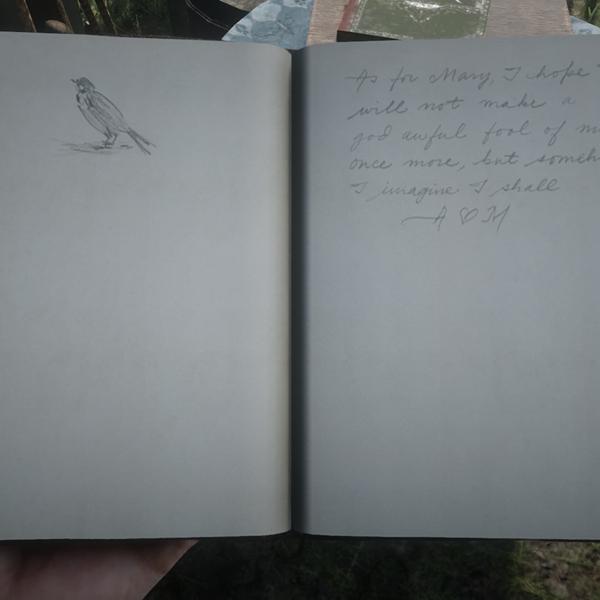 As for Mary, I hope I
will not make a
god awful fool of
once more, but
I imagine I shall
—A ♡ M